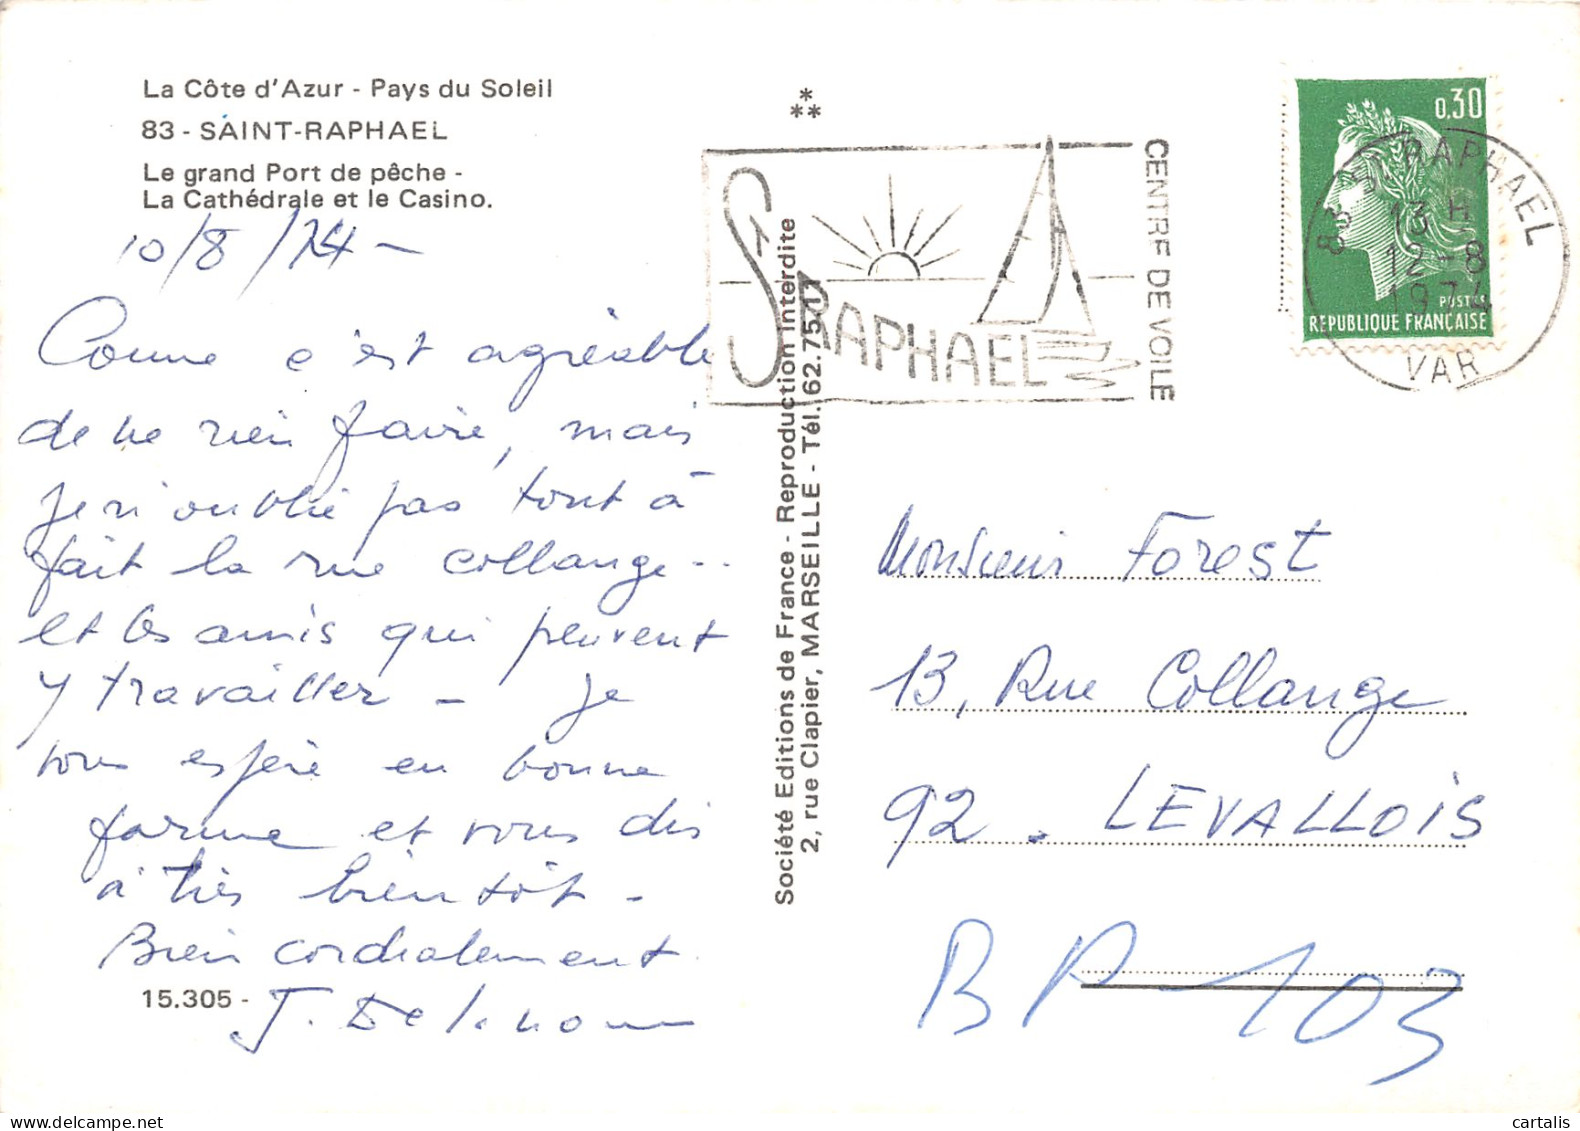 La Côte d'Azur - Pays du Soleil
83 - SAINT-RAPHAEL
Le grand Port de pêche -
La Cathédrale et le Casino.
10/8/74 -
Comme c'est agréable
de ne rien faire, mais
je n'oublie pas tout à
fait la rue collange --
et les amis qui peuvent
y travailler - je
vous espère en bonne
forme et vous dis
à très bientôt -
Bien cordialement
15.305 -
Société Editions de France - Reproduction Interdite
2, rue Clapier, MARSEILLE - Tél. 62.75.17
ST RAPHAEL
CENTRE DE VOILE
0,30
POSTES
REPUBLIQUE FRANÇAISE
83 ST RAPHAEL
13 H
12-8
1974
VAR
Monsieur Forest
13, Rue Collange
92 - LEVALLOIS
BP 103
cartalis